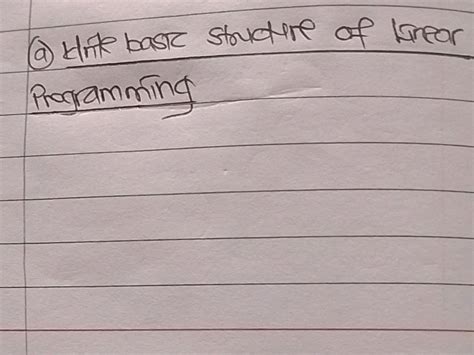 (a) Write basic structure of linear
Programming